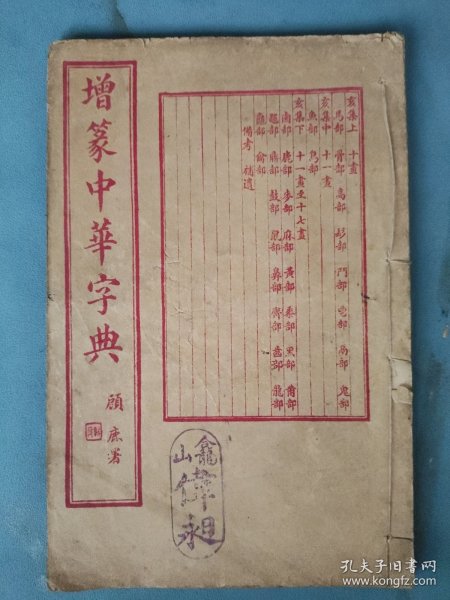 增篆中華字典
顧廉署
亥集上 十畫
馬部 骨部 高部 髟部 鬥部 鬯部 鬲部 鬼部
亥集中 十一畫
魚部 鳥部
亥集下 十一畫至十七畫
鹵部 鹿部 麥部 麻部 黃部 黍部 黑部 黹部
黽部 鼎部 鼓部 鼠部 鼻部 齊部 齒部 龍部
龜部 龠部
備考 補遺
龕山
偉昶
孔夫子旧书网
www.kongfz.com